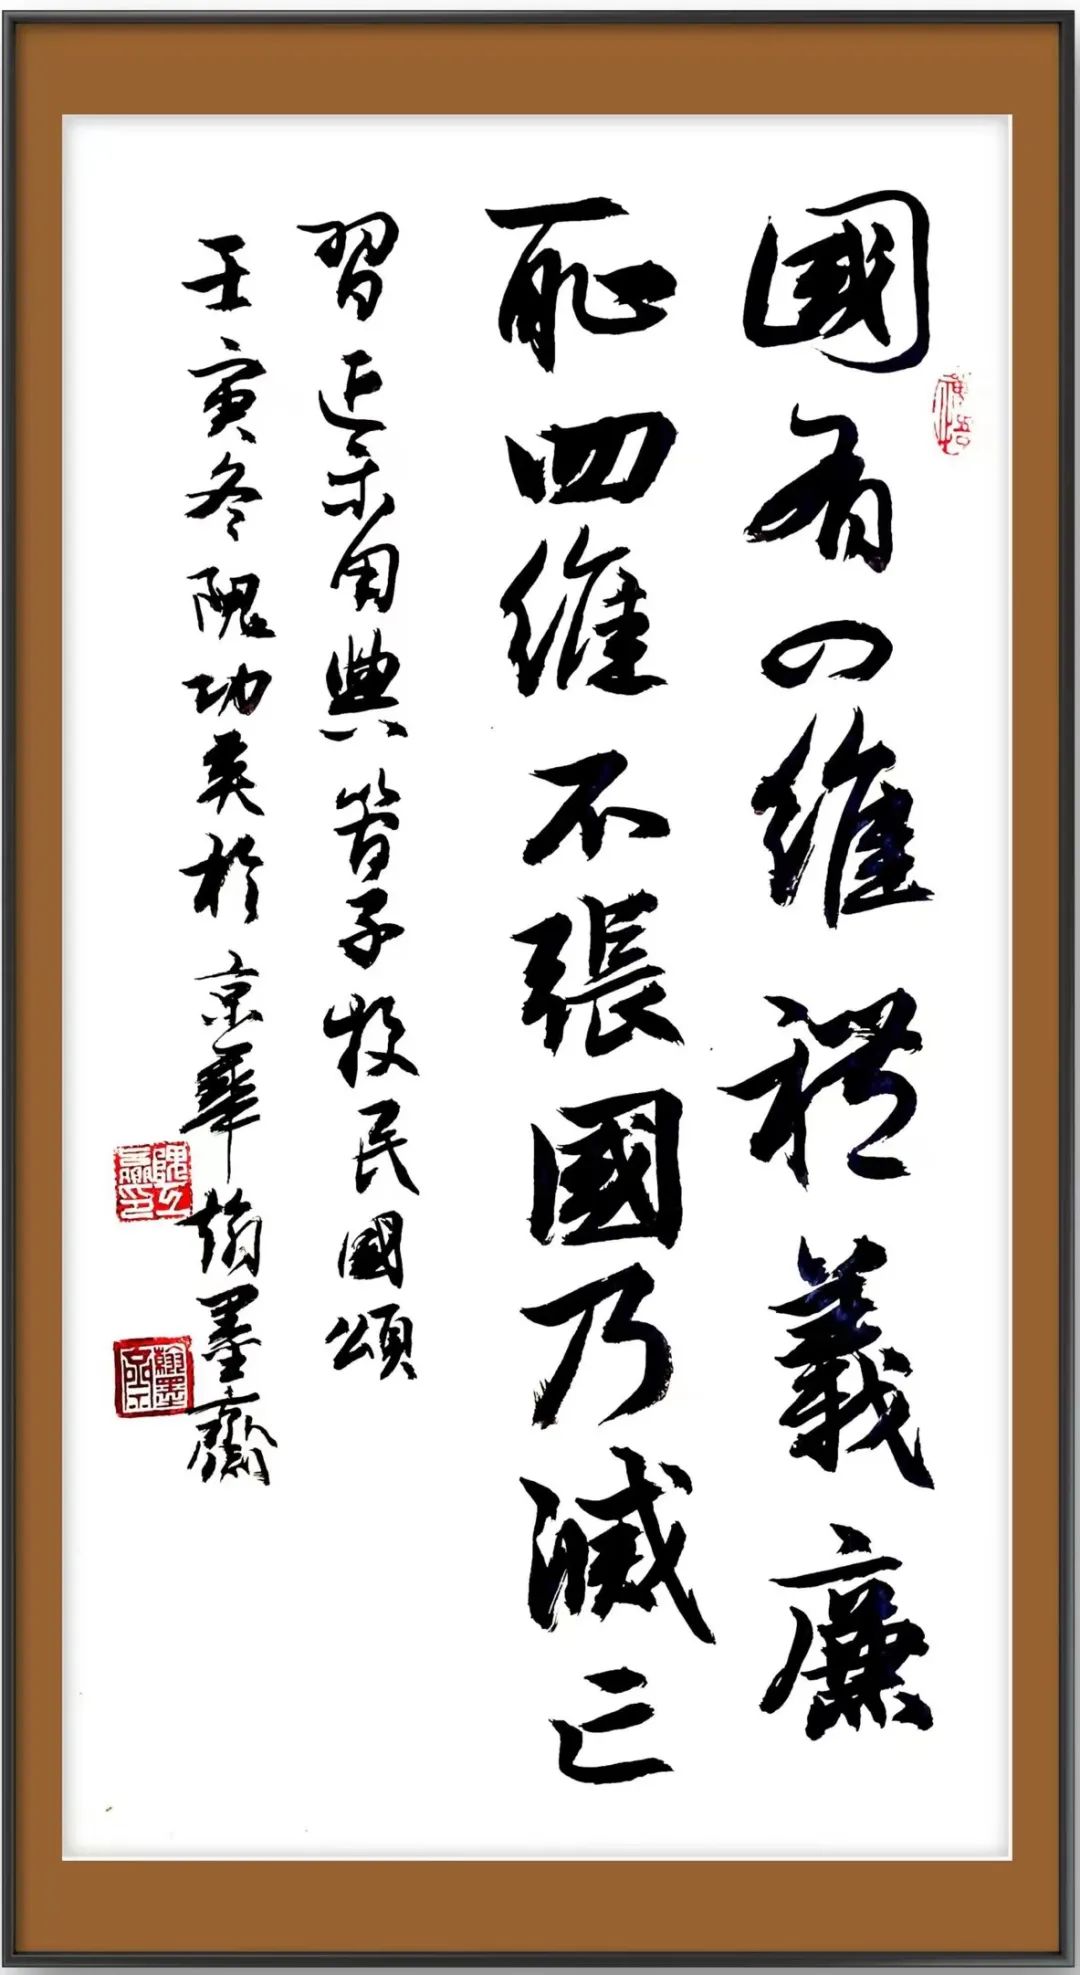 國有四維禮義廉
恥四維不張國乃滅亡
習近平用典管子牧民國頌
壬寅冬隗功於京華翰墨齋